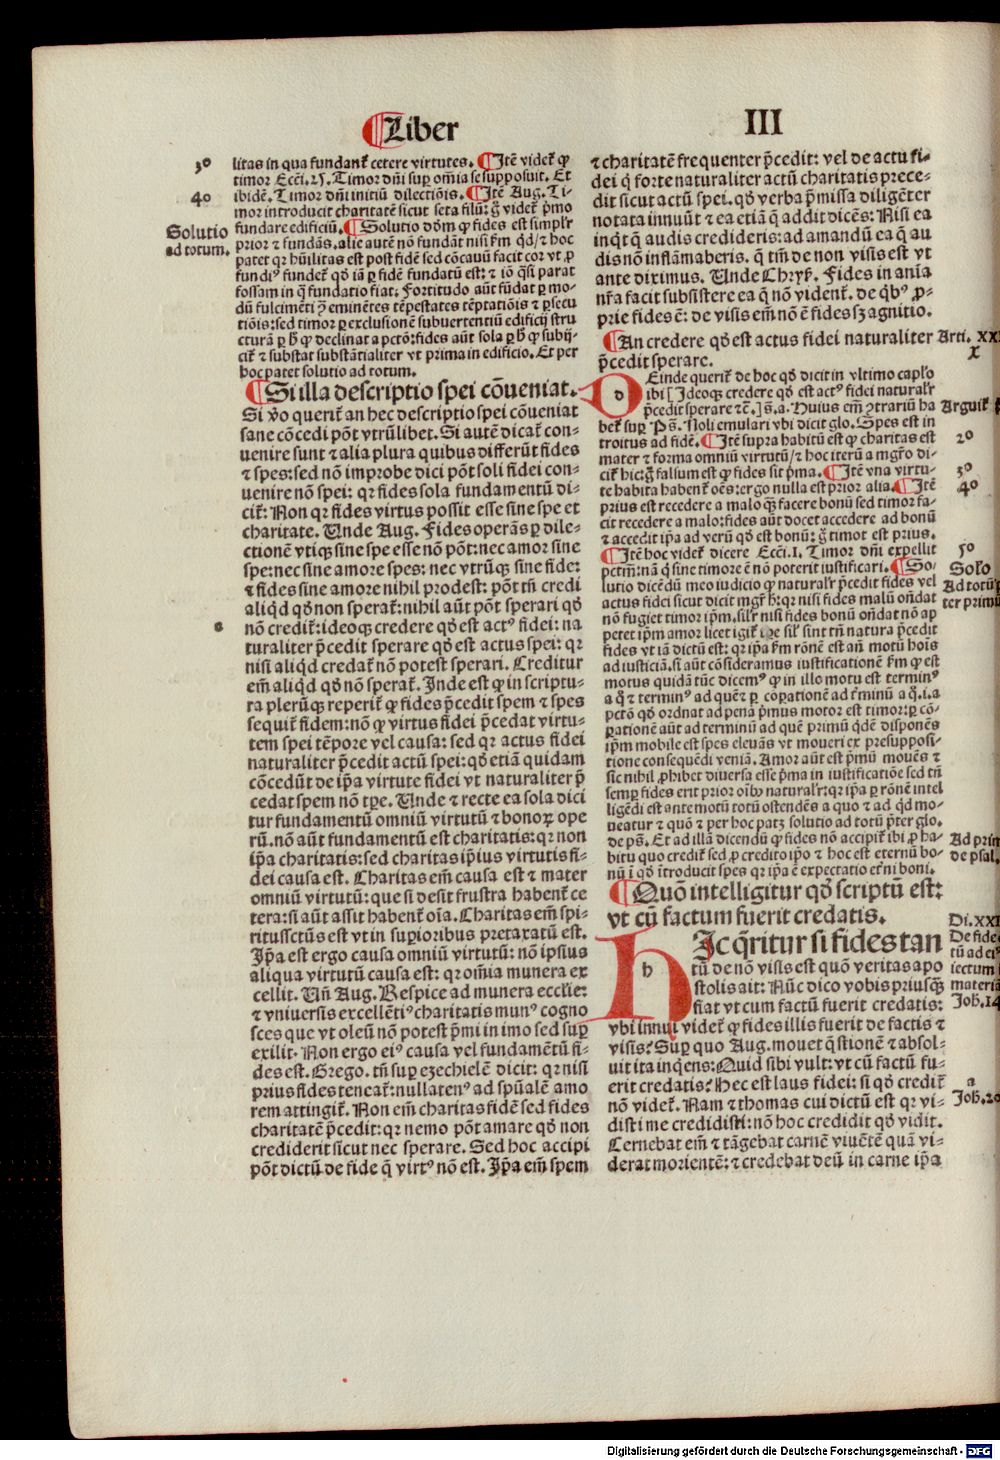 ¶Liber
III
3°
40
Solutio
ad totum.
litas in qua fundant᷑ cetere virtutes. ¶Itē videt᷑ ꝙ
timor Ecc̄i.25. Timor dn̄i suꝑ om̄ia se supposuit. Et
ibidē. Timor dn̄i initiū dilectiōis. ¶Itē Aug. Ti-
mor introducit charitatē sicut seta filū: g̊ videt᷑ p̄mo
fundare edificiū. ¶Solutio dōm ꝙ fides est simpl'r
prior ⁊ fundās, alie autē nō fundāt nisi ẜm qd/⁊ hoc
patet qꝛ hūilitas est post fidē sed cōcauū facit cor vt ꝓ
fundiꝰ fundet᷑ qd̓ iā ꝑ fidē fundatū est: ⁊ iō q̄si parat
fossam in q̄ fundatio fiat. Fortitudo aūt fūdat ꝑ mo-
dū fulcimēti ꝯ̄ eminētes tēpestates tēptatiōis ⁊ ꝑsecu
tiōis: sed timor ꝑ exclusionē subuertentiū edificiū stru
cturā ꝑ h̓ ꝙ declinat a pctō: fides aūt sola ꝑ h̓ ꝙ subij-
cit᷑ ⁊ substat substātialiter vt prima in edificio. Et per
hoc patet solutio ad totum.
¶Si illa descriptio spei cōueniat.
Si v̓o querit᷑ an hec descriptio spei cōueniat
sane cōcedi pōt vtrūlibet. Si autē dicat᷑ con-
uenire sunt ⁊ alia plura quibus differūt fides
⁊ spes: sed nō improbe dici pōt soli fidei con-
uenire nō spei: qꝛ fides sola fundamentū di-
cit᷑: Non qꝛ fides virtus possit esse sine spe et
charitate. Unde Aug. Fides operās ꝑ dile-
ctionē vtiqꝫ sine spe esse nō pōt: nec amor sine
spe: nec sine amore spes: nec vtrūqꝫ sine fide:
⁊ fides sine amore nihil prodest: pōt tn̄ credi
aliqd qd̓ non sperat᷑: nihil aūt pōt sperari qd̓
nō credit᷑: ideoqꝫ credere qd̓ est actꝰ fidei: na
turaliter p̄cedit sperare qd̓ est actus spei: qꝛ
nisi aliqd credat᷑ nō potest sperari. Creditur
em̄ aliqd qd̓ nō sperat᷑. Inde est ꝙ in scriptu-
ra plerūqꝫ reperit᷑ ꝙ fides p̄cedit spem ⁊ spes
sequit᷑ fidem: nō ꝙ virtus fidei p̄cedat virtu-
tem spei tēpore vel causa: sed qꝛ actus fidei
naturaliter p̄cedit actū spei: qd̓ etiā quidam
cōcedūt de ip̄a virtute fidei vt naturaliter p̄
cedat spem nō tꝑe. Unde ⁊ recte ea sola dici
tur fundamentū omniū virtutū ⁊ bonoꝝ ope
rū. nō aūt fundamentū est charitatis: qꝛ non
ip̄a charitatis: sed charitas ip̄ius virtutis fi-
dei causa est. Charitas em̄ causa est ⁊ mater
omniū virtutū: que si desit frustra habent᷑ ce
tera: si aūt assit habent᷑ oīa. Charitas em̄ spi-
ritussctūs est vt in suꝑioribus pretaxatū est.
Ip̄a est ergo causa omniū virtutū: nō ipsius
aliqua virtutū causa est: qꝛ om̄ia munera ex
cellit. Un̄ Aug. Respice ad munera ecclīe:
⁊ vniuersis excellētiꝰ charitatis munꝰ cogno
sces que vt oleū nō potest p̄mi in imo sed suꝑ
exilit. Non ergo eiꝰ causa vel fundamētū fi-
des est. Grego. tn̄ suꝑ ezechielē dicit: qꝛ nisi
prius fides teneat᷑: nullatenꝰ ad spūalē amo
rem attingit᷑. Non em̄ charitas fidē sed fides
charitatē p̄cedit: qꝛ nemo pōt amare qd̓ non
crediderit sicut nec sperare. Sed hoc accipi
pōt dictū de fide q̄ virtꝰ nō est. Ip̄a em̄ spem
⁊ charitatē frequenter p̄cedit: vel de actu fi-
dei q̄ forte naturaliter actū charitatis prece-
dit sicut actū spei. qd̓ verba p̄missa diligēter
notata innuūt ⁊ ea etiā q̄ addit dicēs: Nisi ea
inqt q̄ audis credideris: ad amandū ea q̄ au
dis nō inflāmaberis. q̄ tm̄ de non visis est vt
ante diximus. Unde Chryẜ. Fides in anīa
nr̄a facit subsistere ea q̄ nō vident᷑. de qb̓ꝰ ꝓ-
prie fides ē: de visis em̄ nō ē fides sꝫ agnitio.
¶An credere qd̓ est actus fidei naturaliter
p̄cedit sperare.
Arti. XXI
X
DEinde querit᷑ de hoc qd̓ dicit in vltimo capl̓o
ibi [Ideoqꝫ credere qd̓ est actꝰ fidei natural'r
p̄cedit sperare ⁊c̄.] s̄. a. Huius em̄ ꝯtrariū ha
bet᷑ suꝑ Ps̄. Noli emulari vbi dicit glo. Spes est in
troitus ad fidē. ¶Itē supra habitū est ꝙ charitas est
mater ⁊ forma omniū virtutū/⁊ hoc iterū a mgr̄o di-
cit᷑ hic: g̊ falsum est ꝙ fides sit p̄ma. ¶Itē vna virtu-
te habita habent᷑ oēs: ergo nulla est prior alia. ¶Itē
prius est recedere a malo qꝫ facere bonū sed timor fa-
cit recedere a malo: fides aūt docet accedere ad bonū
⁊ accedit ip̄a ad verū qd̓ est bonū: g̊ timor est prius.
¶Itē hoc videt᷑ dicere Ecc̄i.1. Timor dn̄i expellit
pctm̄: nā q̄ sine timore ē nō poterit iustificari. ¶So-
lutio dicēdū meo iudicio ꝙ natural'r p̄cedit fides vel
actus fidei sicut dicit mgr̄ h̓: qꝛ nisi fides malū oñdat
nō fugiet timor ip̄m. sil'r nisi fides bonū oñdat nō ap
petet ip̄m amor licet igit᷑ tꝑe sil̓ sint tn̄ natura p̄cedit
fides vt iā dictū est: qꝛ ip̄a ẜm rōnē est añ motū hoīs
ad iusticiā. si aūt cōsideramus iustificationē ẜm ꝙ est
motus quidā tūc dicemꝰ ꝙ in illo motu est terminꝰ
a q̊ ⁊ terminꝰ ad quē: ꝑ cōꝑationē ad t̓minū a q̊. i. a
pctō qd̓ ordnat ad penā p̄mus motor est timor: ꝑ cō-
ꝑationē aūt ad terminū ad quē primū qdē disponēs
ip̄m mobile est spes eleuās vt moueri ex presupposi-
tione consequēdi veniā. Amor aūt est p̄mū mouēs ⁊
sic nihil ꝓhibet diuersa esse p̄ma in iustificatiōe sed tn̄
semꝑ fides erit prior oīb̓ natural'r: qꝛ ip̄a ꝑ rōnē intel
ligēdi est ante motū totū ostendēs a quo ⁊ ad qd mo-
ueatur ⁊ quō ⁊ per hoc patꝫ solutio ad totū p̄ter glo.
de ps̄. Et ad illā dicendū ꝙ fides nō accipit᷑ ibi ꝓ ha-
bitu quo credit᷑ sed ꝓ credito ip̄o ⁊ hoc est eternū bo-
nū ī qd̓ ītroducit spes qꝛ ip̄a ē expectatio et̓ni boni.
Arguit᷑
20
3°
40
50
Solo
Ad totū
ter primū
Ad prim
de psal.
¶Quō intelligitur qd̓ scriptū est:
vt cū factum fuerit credatis.
HIc q̄ritur si fides tan
tū de nō visis est quō veritas apo
stolis ait: Nūc dico vobis priusqꝫ
fiat vt cum factū fuerit credatis:
vbi innui videt᷑ ꝙ fides illis fuerit de factis ⁊
visis? Suꝑ quo Aug. mouet q̄stionē ⁊ absol-
uit ita inqens: Quid sibi vult: vt cū factū fu-
erit credatis? Hec est laus fidei: si qd̓ credit᷑
nō videt᷑. Nam ⁊ thomas cui dictū est qꝛ vi-
disti me credidisti: nō hoc credidit qd̓ vidit.
Cernebat em̄ ⁊ tāgebat carnē viuētē quā vi-
derat morientē: ⁊ credebat deū in carne ip̄a
Di. XXI
De fide
tū ad eiꝰ
iectum
materiā
Joh̓.14
a
Joh̓.20
Digitalisierung gefördert durch die Deutsche Forschungsgemeinschaft - DFG